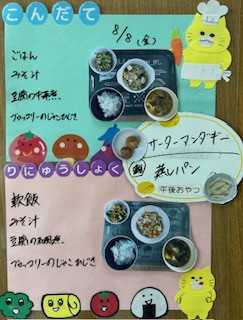 こんだて
8/8(金)
ごはん
みそ汁
豆腐の中華煮
ブロッコリーのじゃこひじき
サーターアンダギー
蒸しパン
午後おやつ
りにゅうしょく
軟飯
みそ汁
豆腐の和風煮
ブロッコリーのじゃこひじき